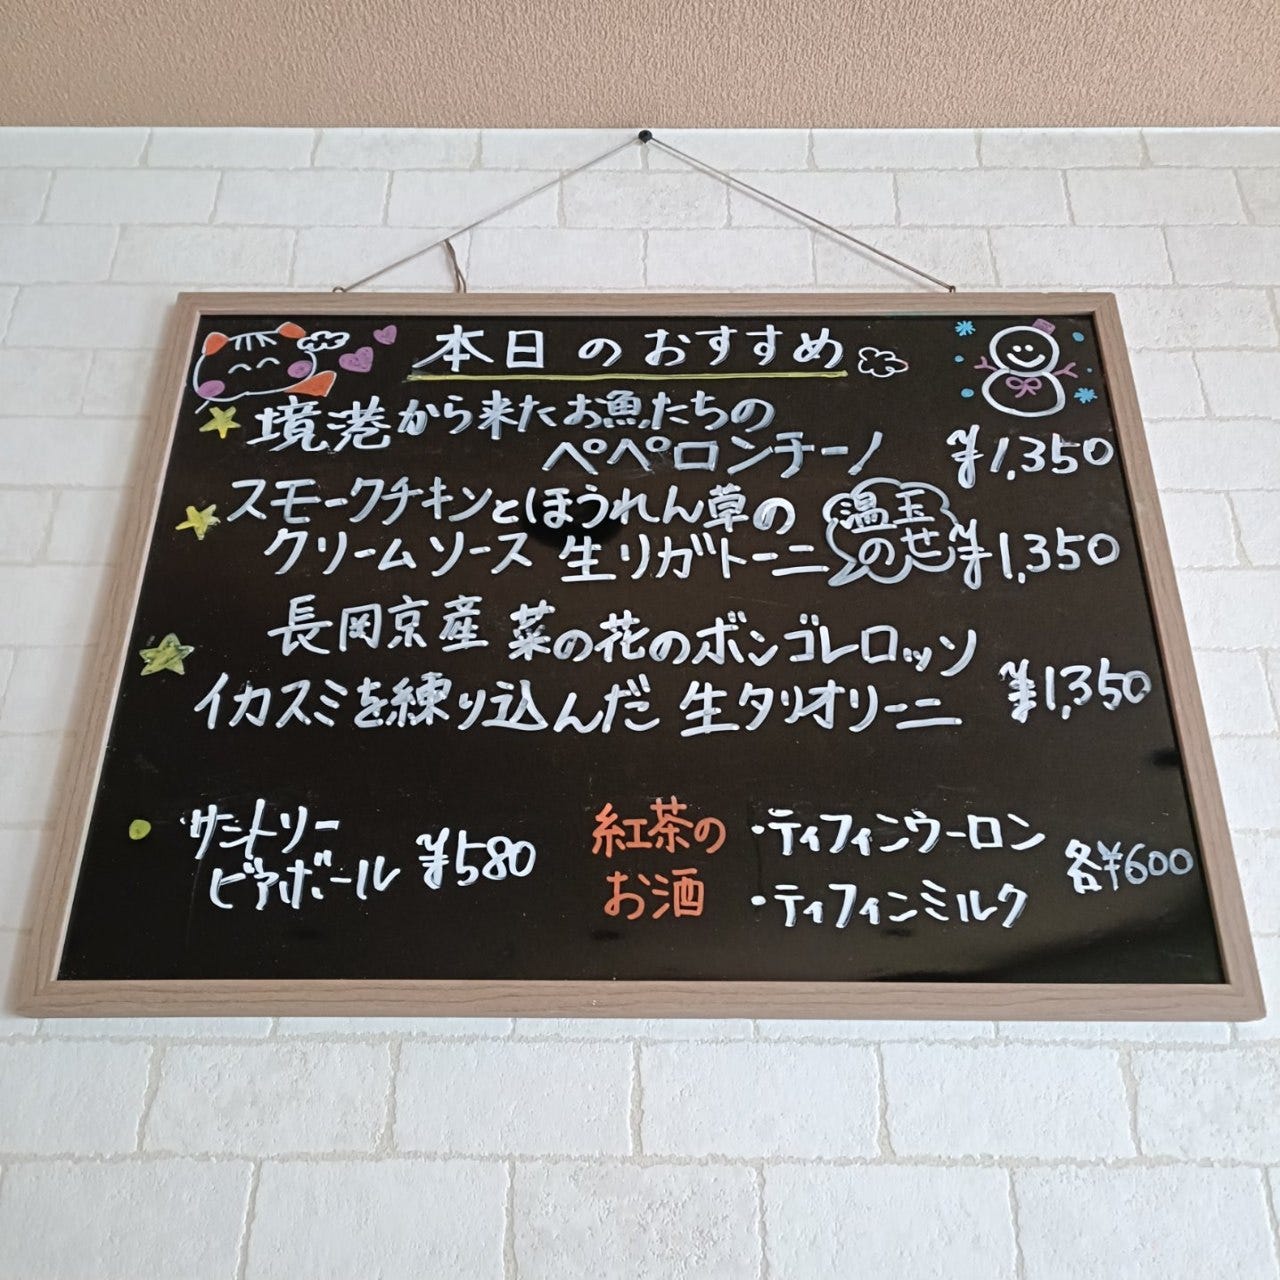 本日のおすすめ
境港から来たお魚たちの
ペペロンチーノ ¥1,350
スモークチキンとほうれん草の
クリームソース 生リガトーニ 温玉のせ ¥1,350
長岡京産 菜の花のボンゴレロッソ
イカスミを練り込んだ 生タリオリーニ ¥1,350
サントリー
ビアボール ¥580
紅茶の
お酒
・ティフィンウーロン
・ティフィンミルク
各¥600